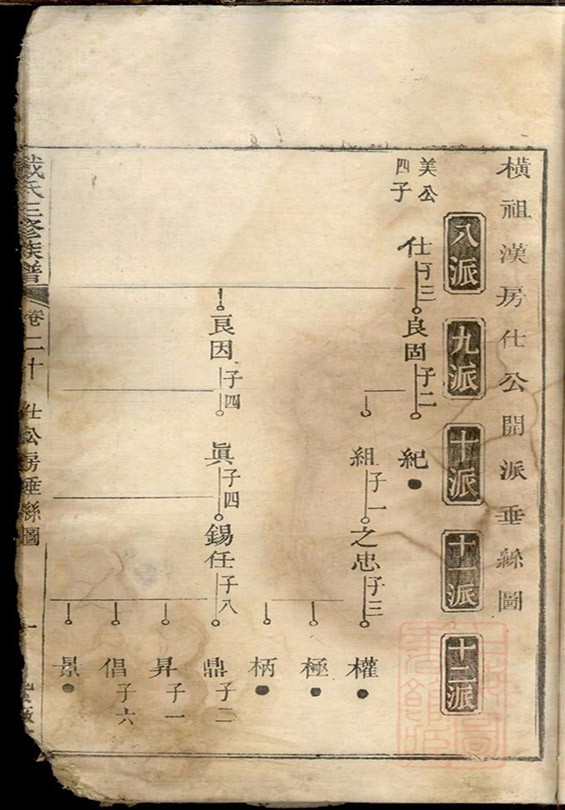 橫祖漢房仕公開派垂絲圖
八派
九派
十派
十一派
十二派
美公
四子
仕
子三
良固
子二
紀
組
子一
之忠
子三
權
極
柄
良因
子四
眞
子四
錫任
子八
鼎
子二
昇
子一
倡
子六
景
戴氏三修族譜
卷二十
仕公房垂絲圖